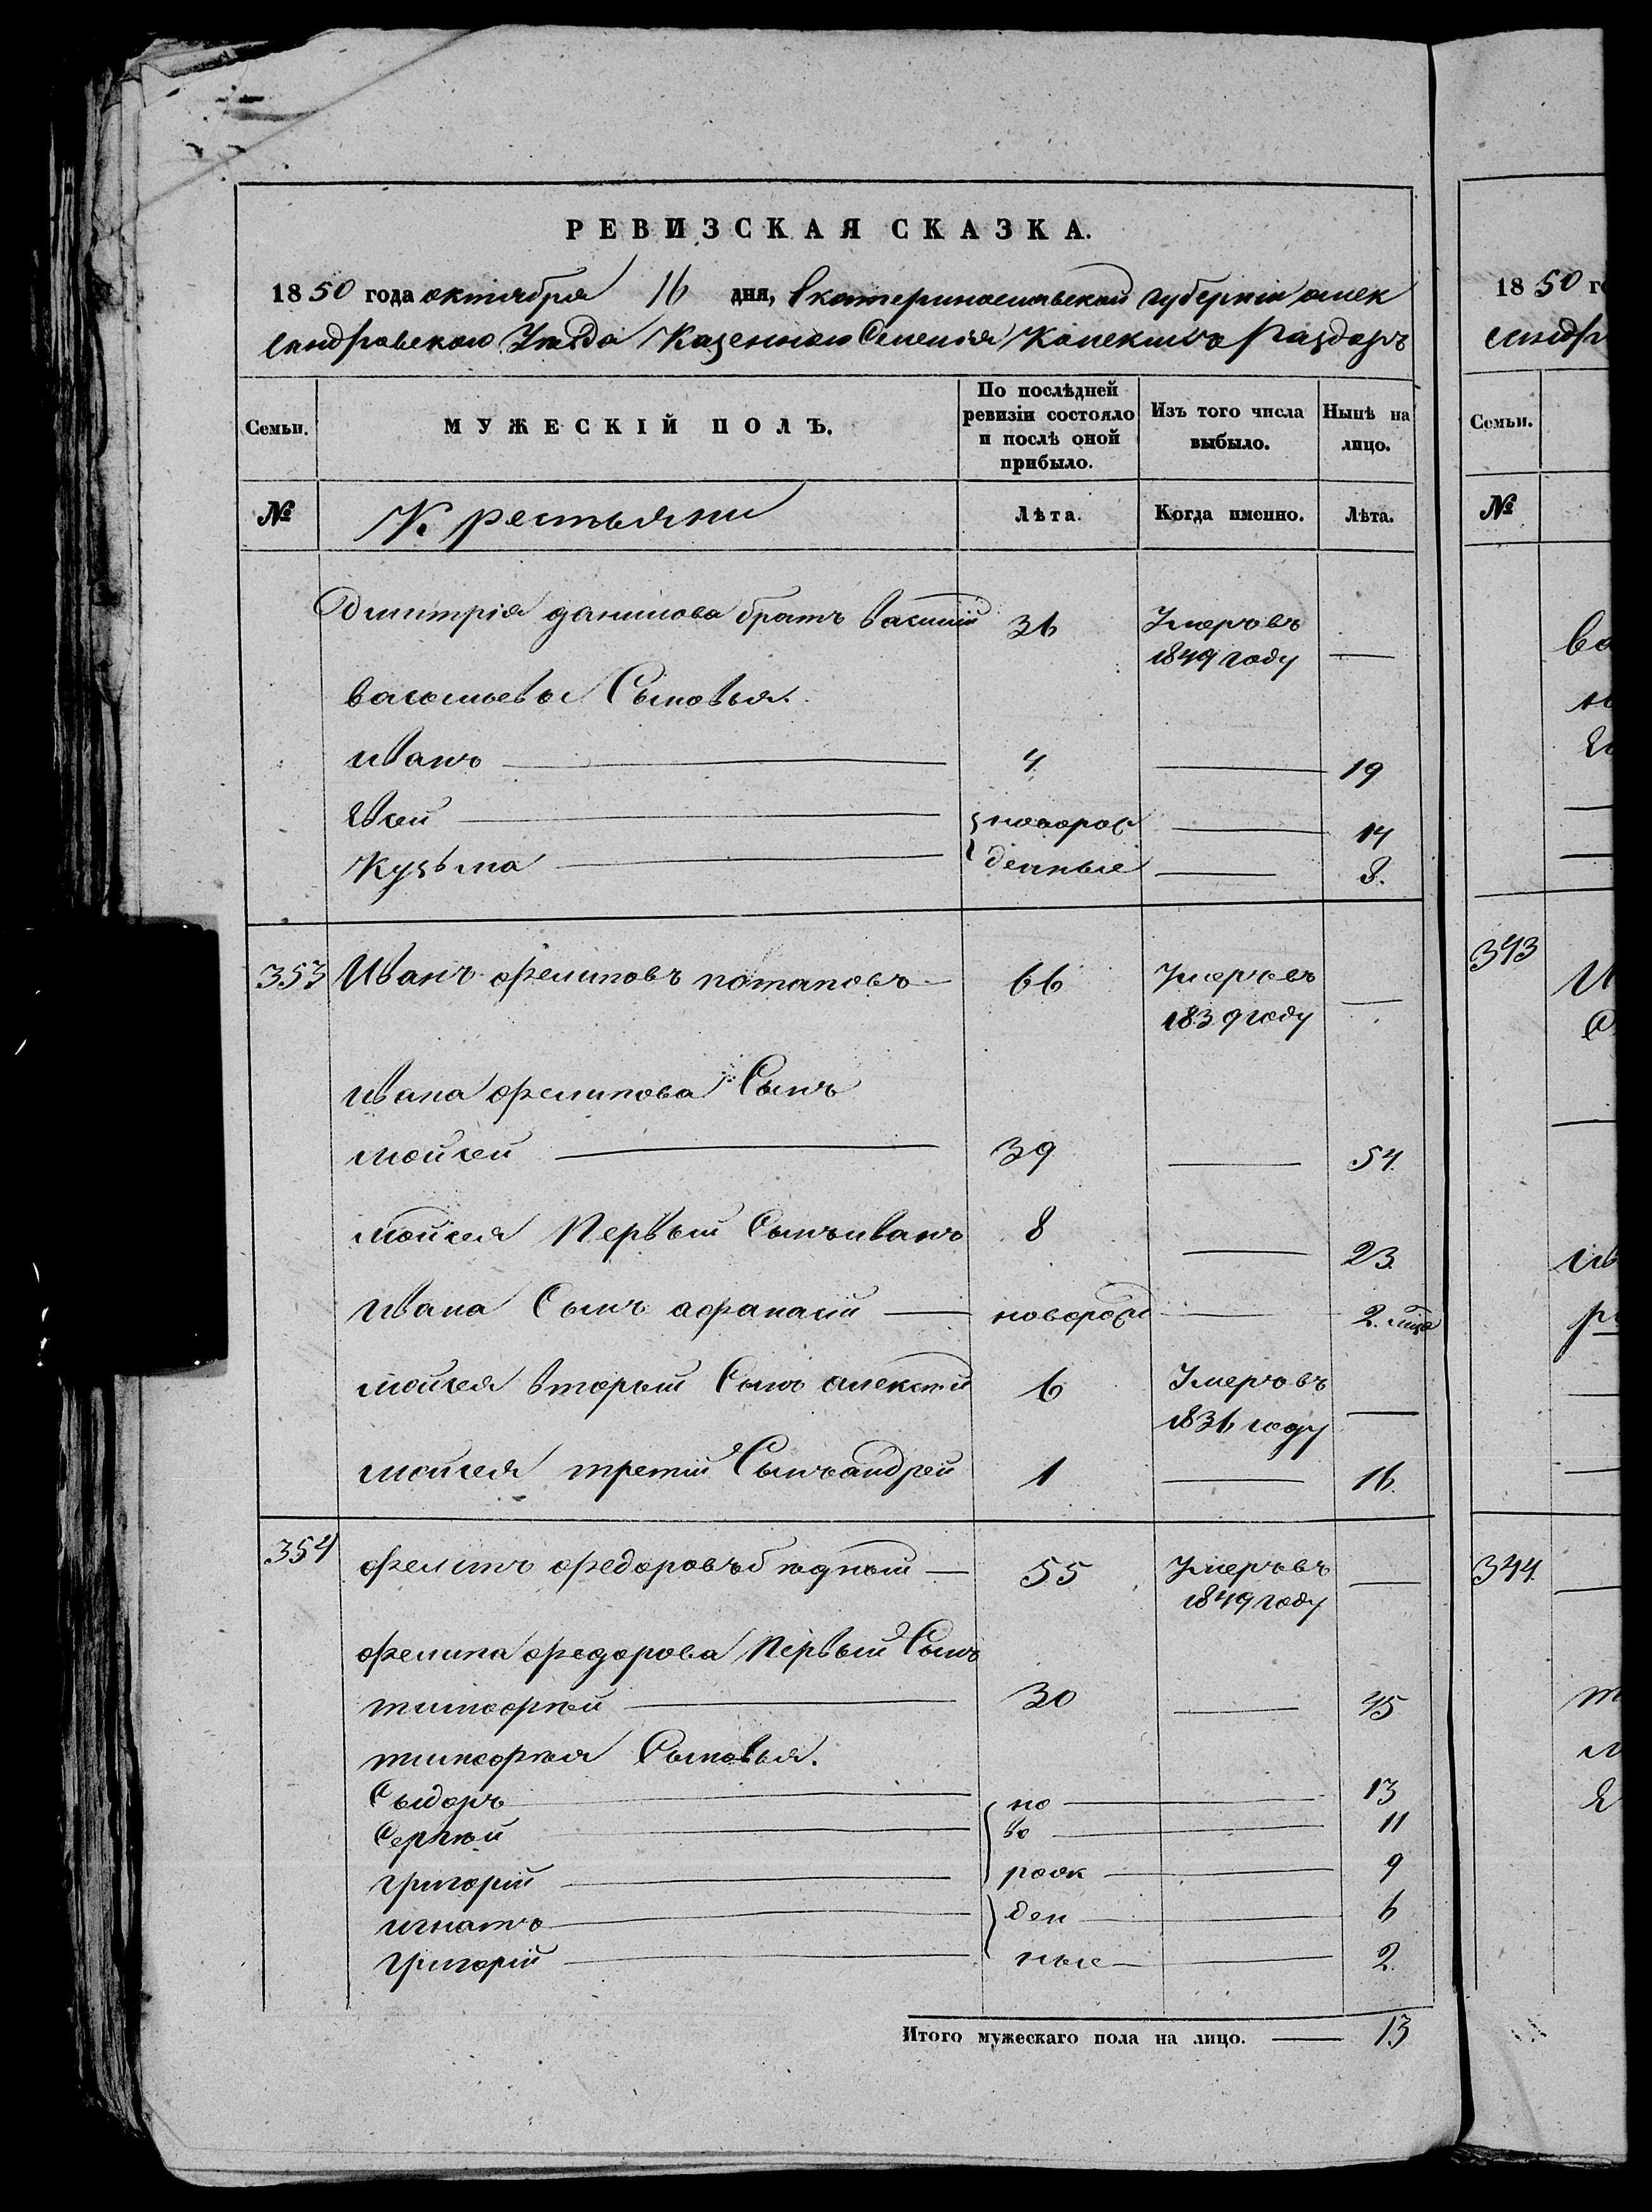 РЕВИЗСКАЯ СКАЗКА.
1850 года октября 16 дня, Екатеринославской губернии алек
сандровскаго Уѣзда Казеннаго Селенія Конекихъ Раздоръ
Семьи. МУЖЕСКІЙ ПОЛЪ. По послѣдней ревизіи состояло и послѣ оной прибыло. Изъ того числа выбыло. Нынѣ на лицо.
№ Крестьяни Лѣта. Когда именно. Лѣта.
Дмитрія данилова братъ василій 36 Умеръ въ
1849 году —
васильевы Сыновья.
иванъ — 4 — 19
Евсей — новорож — 14
Кузьма — денные — 8.
353 Иванъ филиповъ потаповъ — 66 Умеръ въ
1839 году —
ивана филипова Сынъ
мойсей — 39 — 54.
мойсея Первый Сынъ иванъ 8 — 23.
ивана Сынъ афанасій — новорожд — 2. мца
мойсея второй Сынъ алексѣй 6 Умеръ въ
1836 году —
мойсея третій Сынъ андрей 1 — 16.
354 филипъ федоровъ бѣдный — 55 Умеръ въ
1849 году —
филипа федорова Первый Сынъ
тимофѣй — 30 — 45
тимофѣя Сыновья.
Сыдоръ — но — 13
Сергѣй — во — 11
григорій — рож — 9
игнатъ — ден — 6
григорій — ные — 2.
Итого мужескаго пола на лицо. — 13
1850 го
сандр
Семьи.
№
343
344